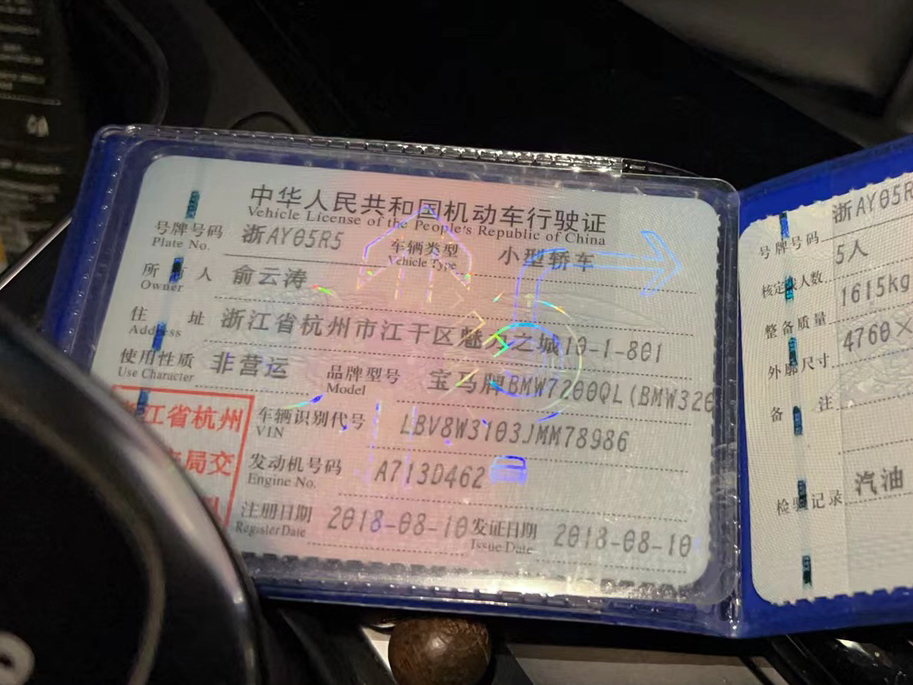 中华人民共和国机动车行驶证
Vehicle License of the People's Republic of China
号牌号码 浙AY05R5 车辆类型 小型轿车
Plate No. Vehicle Type
所有人 俞云涛
Owner
住址 浙江省杭州市江干区魅力之城10-1-801
Address
使用性质 非营运 品牌型号 宝马牌BMW7200QL(BMW320
Use Character Model
车辆识别代号 LBV8W3103JMM78986
VIN
发动机号码 A713D462
Engine No.
注册日期 2018-08-10 发证日期 2018-08-10
Register Date Issue Date
江省杭州
局交
号牌号码 浙AY05R
核定载人数 5人
整备质量 1615kg
外廓尺寸 4760×
备注
检验记录 汽油